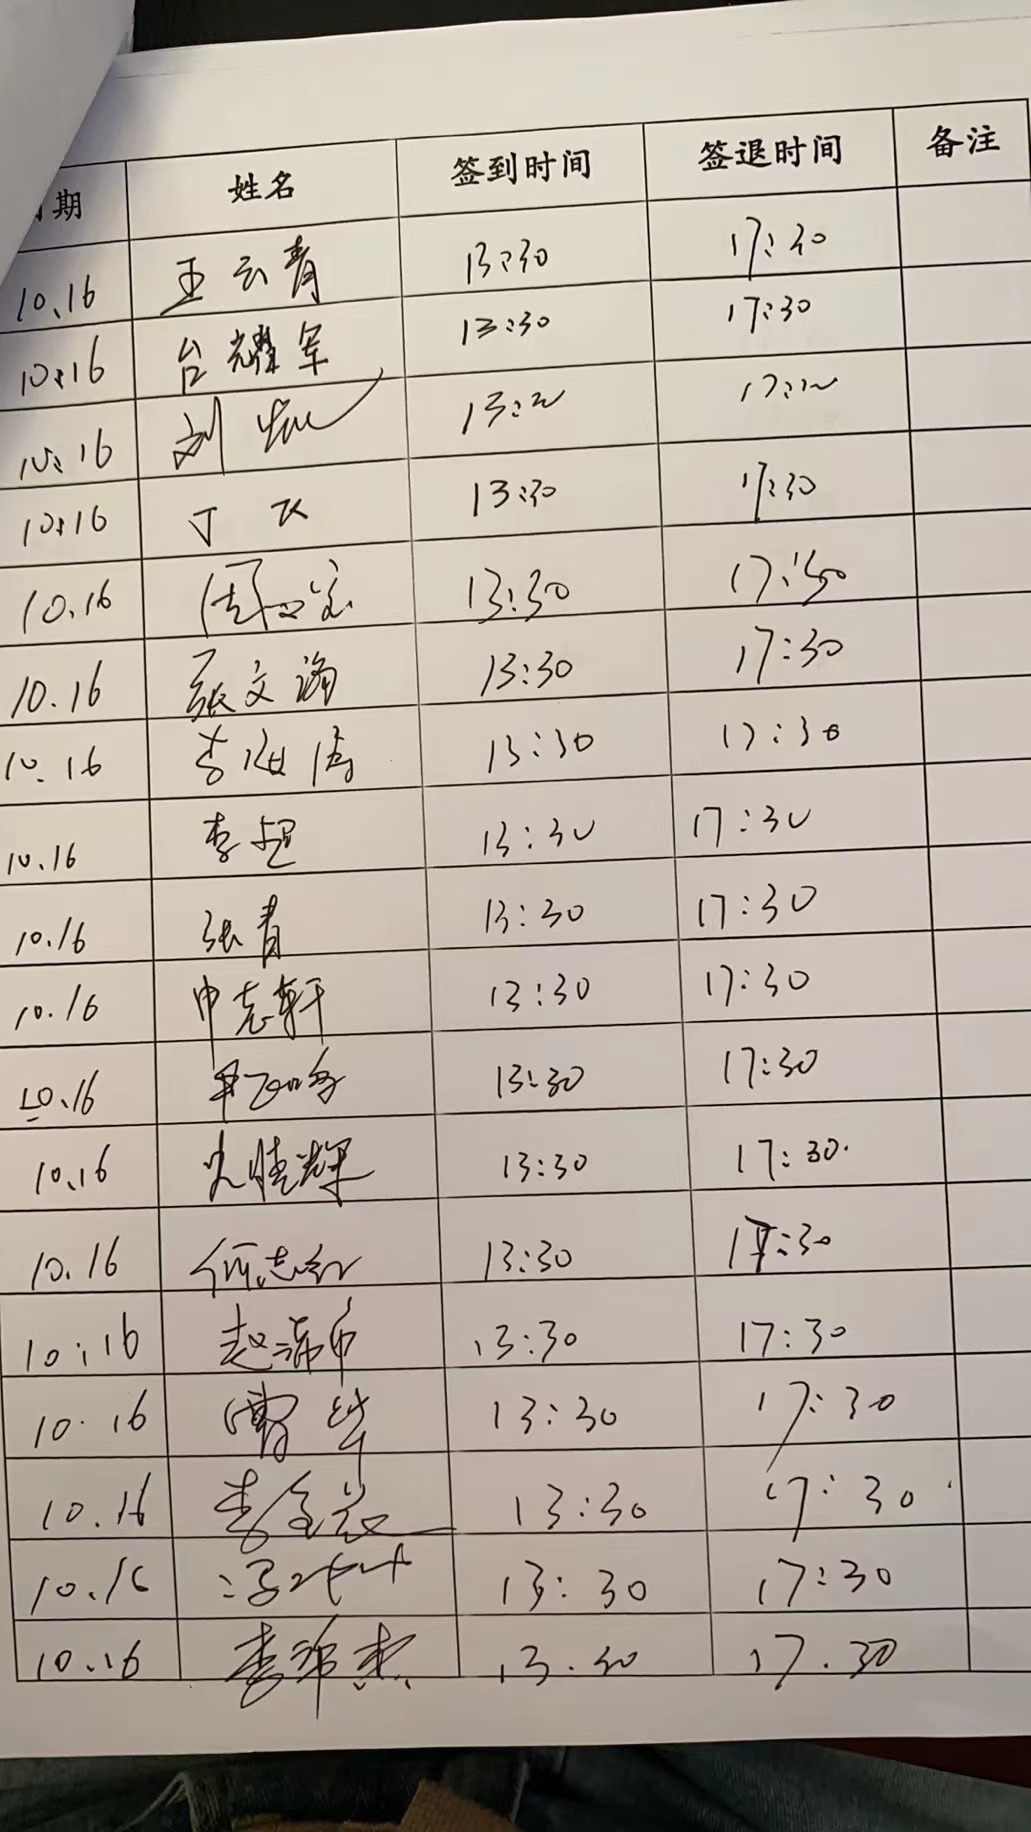 期 姓名 签到时间 签退时间 备注
10.16 王云青 13:30 17:30
10:16 台耀军 13:30 17:30
10:16 刘 13:30 17:30
10:16 丁 13:30 17:30
10.16 周 13:30 17:30
10.16 张文 13:30 17:30
10.16 李 13:30 17:30
10.16 李 13:30 17:30
10.16 张青 13:30 17:30
10.16 申志轩 13:30 17:30
10.16 13:30 17:30
10.16 13:30 17:30.
10.16 何志红 13:30 17:30
10:16 赵 13:30 17:30
10.16 曹 13:30 17:30
10.16 李金 13:30 17:30
10.16 冯 13:30 17:30
10.16 李 杰 13.30 17.30